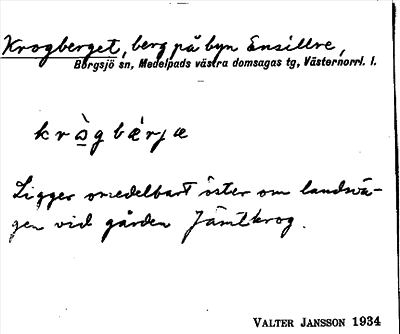 Krogberget, berg på byn Ensillre,
Borgsjö sn, Medelpads västra domsagas tg, Västernorrl. l.
kròg bǽrjæ
Ligger omedelbart öster om landsvä-
gen vid gården Jämtkrog.
VALTER JANSSON 1934